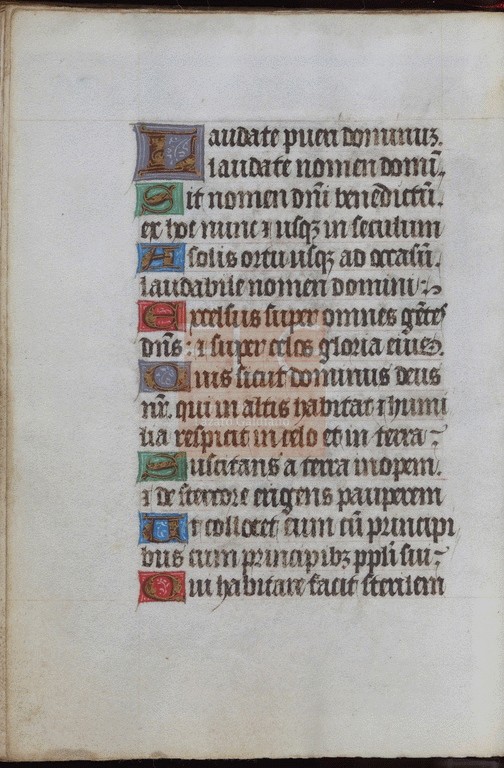 Laudate pueri dominuʒ.
laudate nomen domī.
Sit nomen dn̄i benedictū.
ex hoc nunc ⁊ usqꝫ in seculum
A solis ortu usqꝫ ad occasū.
laudabile nomen domini
Excelsus super omnes gētes
dn̄s: ⁊ super celos gloria eius.
Quis sicut dominus deus
nr̄. qui in altis habitat ⁊ humi
lia respicit in celo et in terra
Suscitans a terra inopem.
⁊ de stercore erigens pauperem
Ut collocet eum cū principi
bus cum principibꝫ pp̄li sui
Qui habitare facit sterilem
Lázaro Galdiano